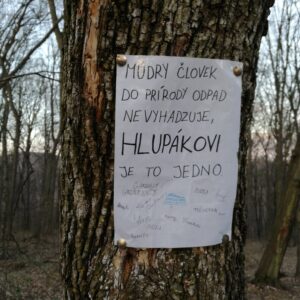 MÚDRY ČLOVEK
DO PRÍRODY ODPAD
NEVYHADZUJE,
HLUPÁKOVI
JE TO JEDNO.